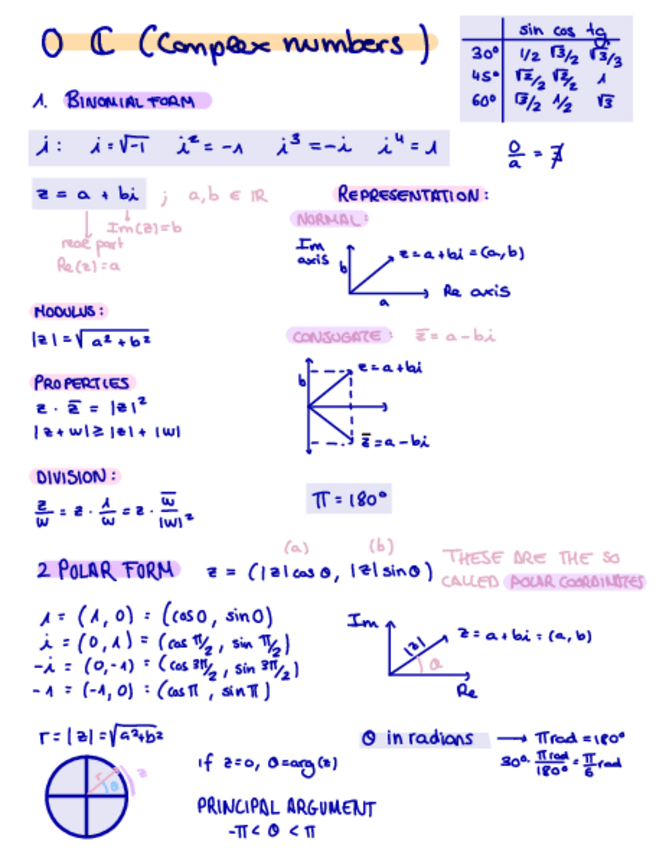 0 ℂ (Complex numbers)
sin cos tg
30° 1/2 √3/2 √3/3
45° √2/2 √2/2 1
60° √3/2 1/2 √3
1. BINOMIAL FORM
i: i=√-1 i² = -1 i³ = -i i⁴ = 1
0/a = ∄
z = a + bi ; a,b ∈ IR
Im(z)=b
real part
Re(z)=a
REPRESENTATION:
NORMAL:
Im axis
b
z=a+bi=(a,b)
a
Re axis
MODULUS:
|z|=√a²+b²
CONJUGATE: z̅=a-bi
b
z=a+bi
z̅=a-bi
PROPERTIES
z · z̅ = |z|²
|z+w|≥|z|+|w|
DIVISION:
z/w = z · 1/w = z · w̅/|w|²
π = 180°
2 POLAR FORM
(a) (b)
z = (|z|cosθ, |z|sinθ)
THESE ARE THE SO
CALLED POLAR COORDINATES
1 = (1, 0) = (cos0, sin0)
i = (0, 1) = (cos π/2, sin π/2)
-i = (0,-1) = (cos 3π/2, sin 3π/2)
-1 = (-1, 0) = (cosπ, sinπ)
Im
|z|
θ
z=a+bi=(a,b)
Re
r=|z|=√a²+b²
r
θ
z
if z=0, θ=arg(z)
PRINCIPAL ARGUMENT
-π < θ < π
θ in radians → πrad = 180°
30° · πrad/180° = π/6 rad